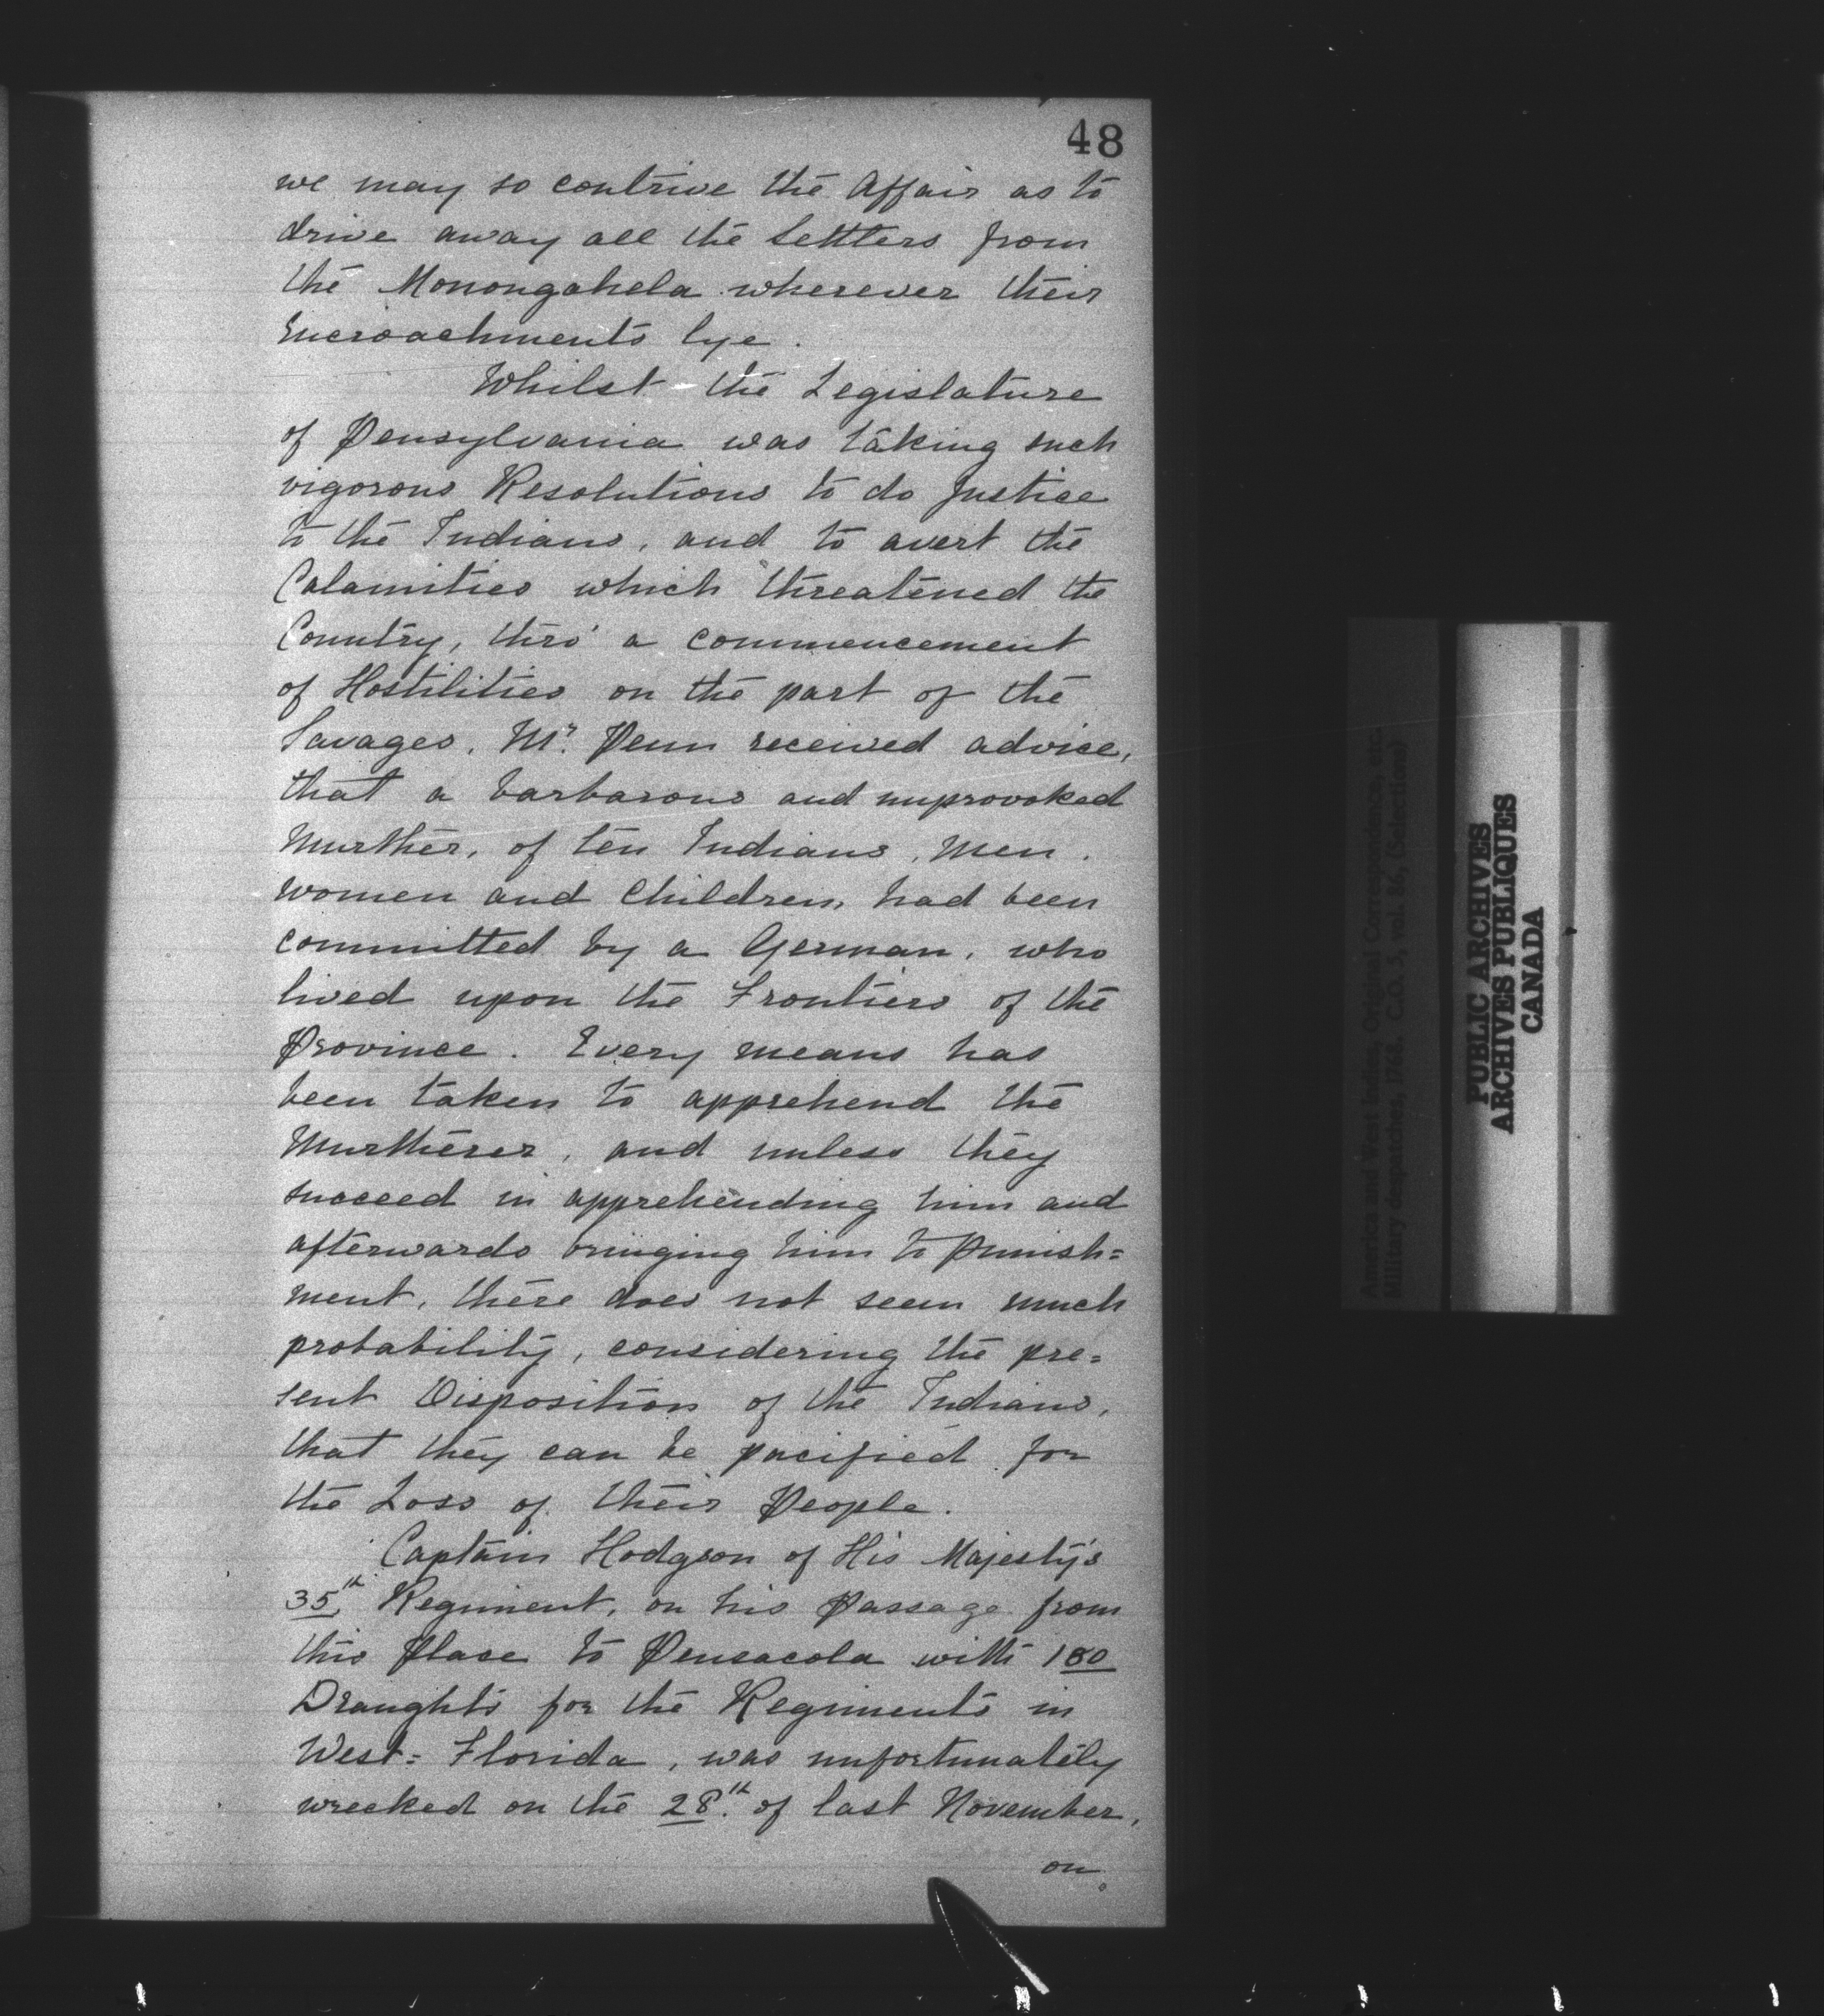 48
we may so contrive the Affair as to
drive away all the Settlers from
the Monongahela wherever their
Encroachments lye.
Whilst the Legislature
of Pensylvania was taking such
vigorous Resolutions to do Justice
to the Indians, and to avert the
Calamities which threatened the
Country, thro' a commencement
of Hostilities on the part of the
Savages, Mr. Penn received advice,
that a barbarous and unprovoked
Murther, of ten Indians, Men.
Women and Children, had been
committed by a German, who
lived upon the Frontiers of the
Province. Every means has
been taken to apprehend the
Murtherer, and unless they
succeed in apprehending him and
afterwards bringing him to Punish=
ment, there does not seem much
probability, considering the pre=
sent Disposition of the Indians,
that they can be pacified for
the Loss of their People.
Captain Hodgson of His Majesty's
35th Regiment, on his Passage from
this Place to Pensacola with 180
Draughts for the Regiments in
West=Florida, was unfortunately
wrecked on the 28th. of last November,
on
America and West Indies, Original Correspondence, etc.
Military despatches, 1768. C.O. 5, vol. 86, (Selections)
PUBLIC ARCHIVES
ARCHIVES PUBLIQUES
CANADA